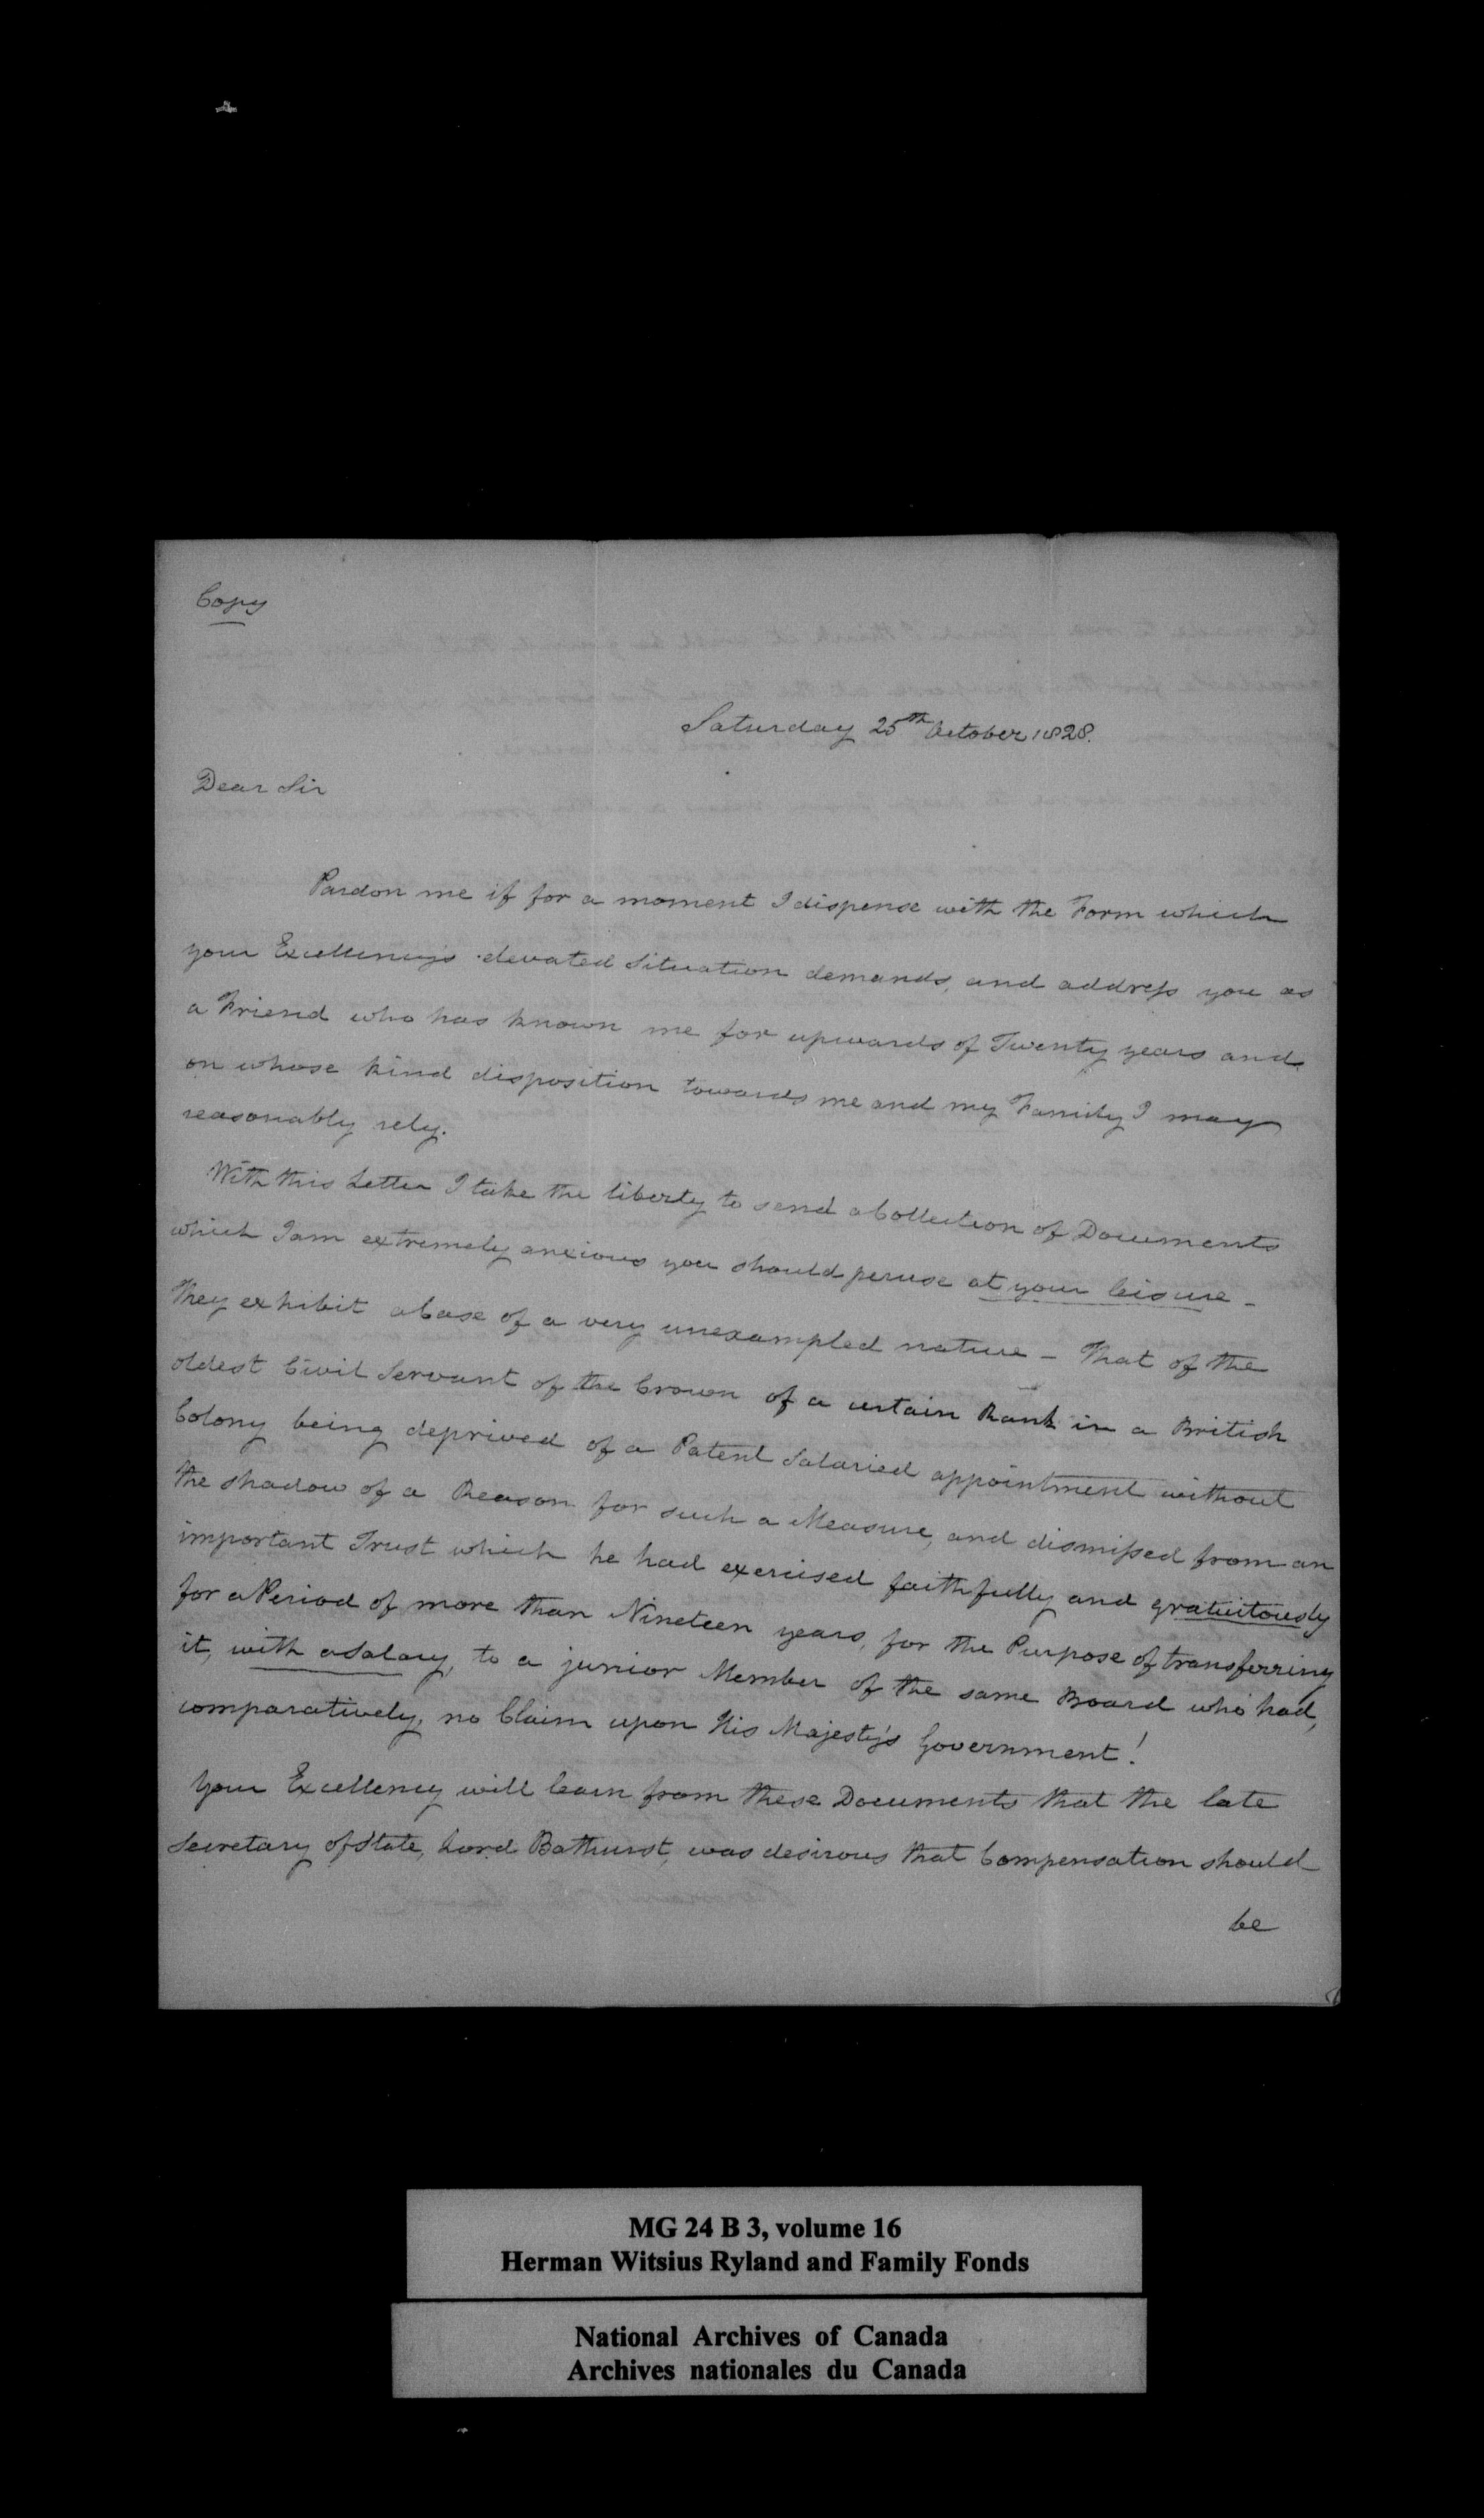 Copy
Saturday 25th October 1828.
Dear Sir
Pardon me if for a moment I dispense with the Form which
your Excellency's elevated Situation demands, and address you as
a Friend who has known me for upwards of Twenty years and
on whose kind disposition towards me and my Family I may
reasonably rely.
With this Letter I take the liberty to send a Collection of Documents
which I am extremely anxious you should peruse at your leisure –
They exhibit a Case of a very unexampled nature – That of the
oldest Civil Servant of the Crown of a certain Rank in a British
Colony being deprived of a Patent Salaried appointment without
the shadow of a Reason for such a Measure, and dismissed from an
important Trust which he had exercised faithfully and gratuitously
for a Period of more than Nineteen years, for the Purpose of transferring
it, with a Salary, to a junior Member of the same Board who had,
comparatively, no Claim upon His Majesty's Government!
Your Excellency will learn from these Documents that the late
Secretary of State, Lord Bathurst, was desirous that Compensation should
be
MG 24 B 3, volume 16
Herman Witsius Ryland and Family Fonds
National Archives of Canada
Archives nationales du Canada